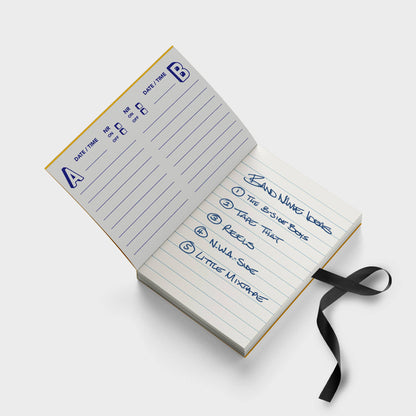 A
DATE / TIME
NR
ON
OFF
NR
ON
OFF
DATE / TIME
B
BAND NAME IDEAS
1 THE B-SIDE BOYS
2 TAPE THAT
3 REELS
4 N.W.A-SIDE
5 LITTLE MIXTAPE